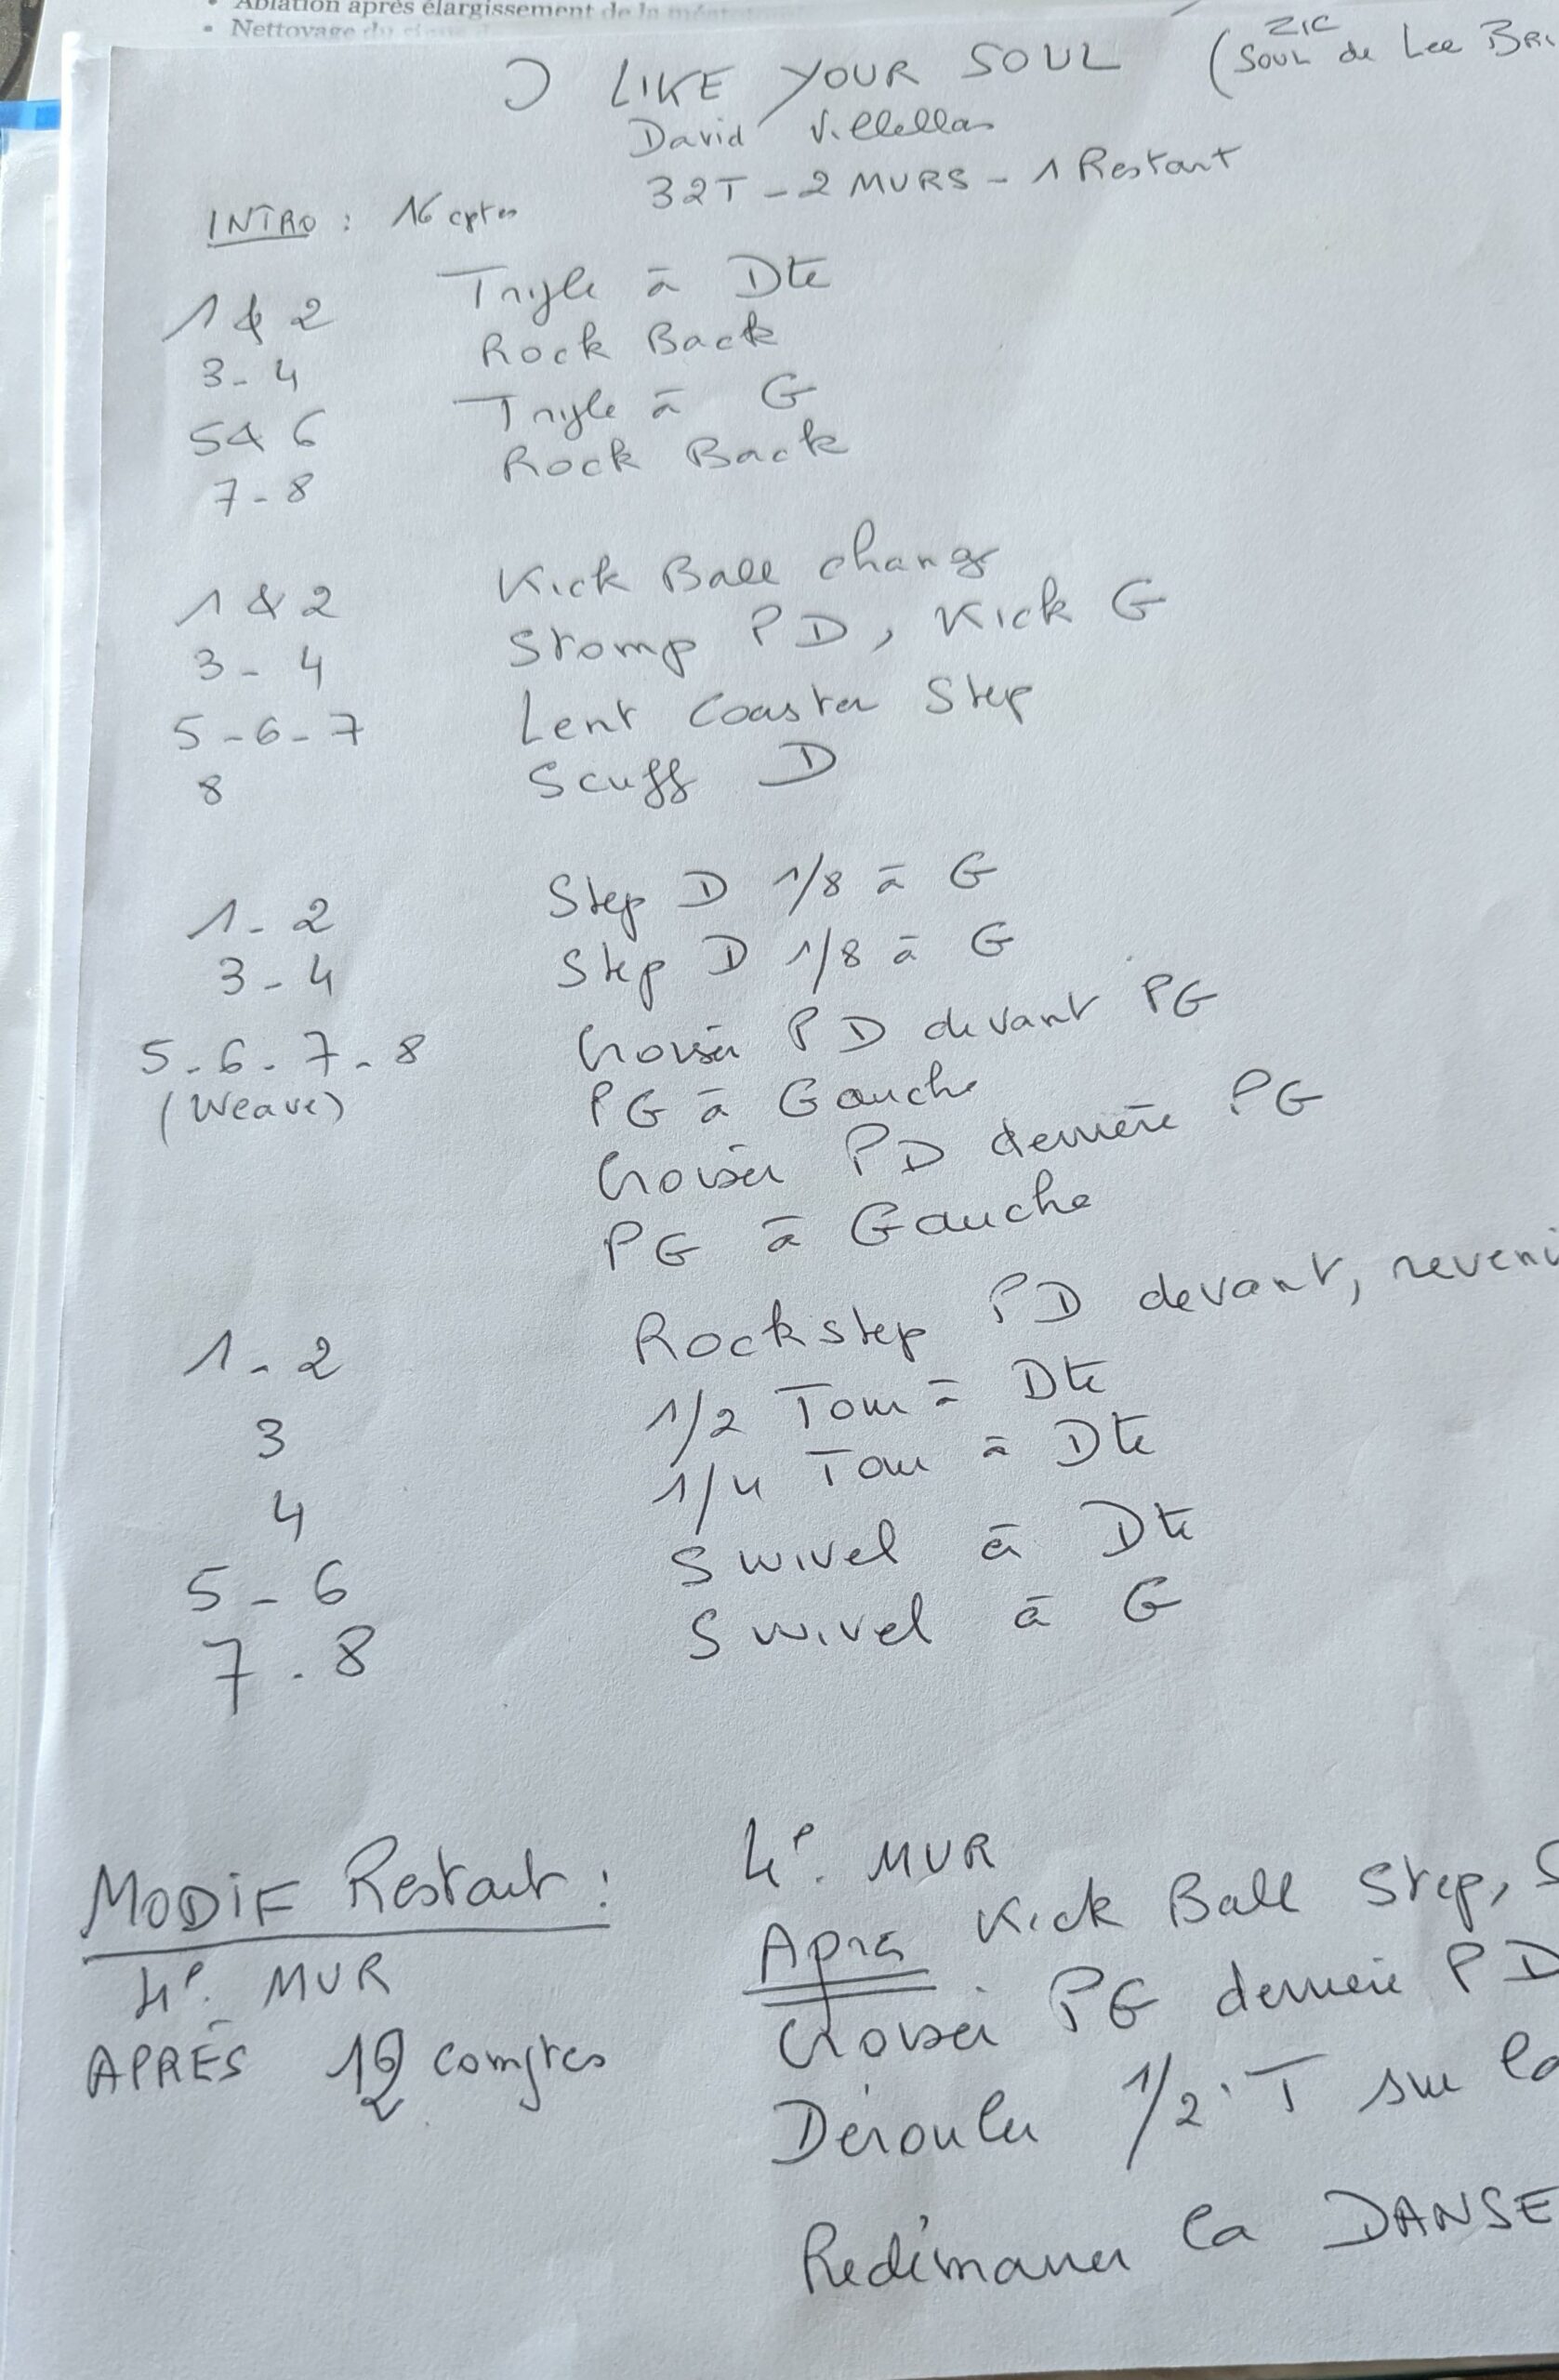 • Ablation après élargissement de la
• Nettoyage du
I LIKE YOUR SOUL (ZIC SOUL de Lee BRI
David Villellas
32T - 2 MURS - 1 Restart
INTRO : 16 cptes
1 & 2 Triple à Dte
3-4 Rock Back
5 & 6 Triple à G
7-8 Rock Back
1 & 2 Kick Ball change
3-4 Stomp PD, Kick G
5-6-7 Lent Coaster Step
8 Scuff D
1-2 Step D 1/8 à G
3-4 Step D 1/8 à G
5-6-7-8 Croiser PD devant PG
(Weave) PG à Gauche
Croiser PD derrière PG
PG à Gauche
1-2 Rockstep PD devant, reveni
3 1/2 Tour à Dte
4 1/4 Tour à Dte
5-6 Swivel à Dte
7-8 Swivel à G
MODIF Restart : 4e. MUR
4e. MUR Après Kick Ball Step, S
APRÈS 12 comptes Croiser PG derrière PD
Dérouler 1/2 T sur la
Redémarrer la DANSE